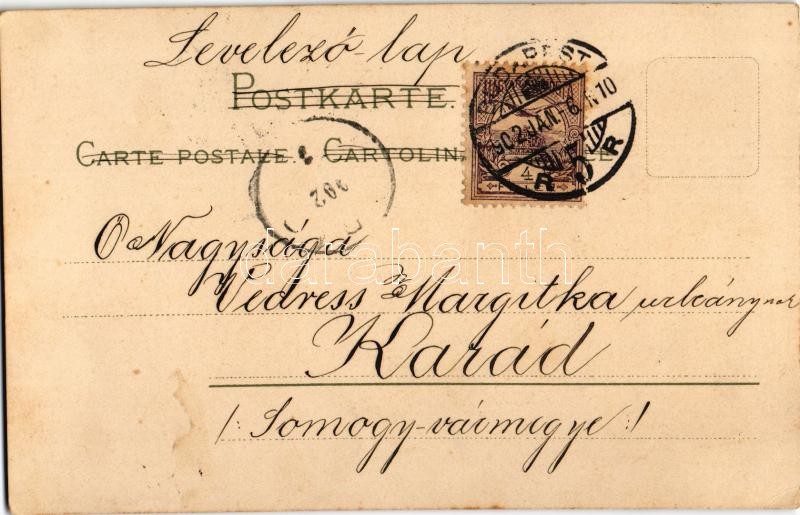 Levelező-lap
POSTKARTE.
CARTE POSTALE. CARTOLIN
BUDAPEST
902 JAN. 6. N 10
4
902
Ő Nagysága
Vedress Margitka urleánynak
Karád
/: Somogy-vármegye :/
darabanth